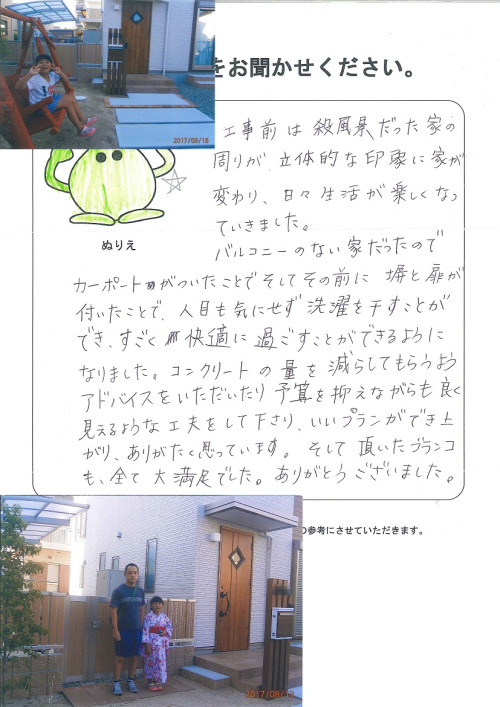 をお聞かせください。
2017/09/18
工事前は殺風景だった家の
周りが、立体的な印象に家が
変わり、日々生活が楽しくなっ
ていきました。
ぬりえ
バルコニーのない家だったので
カーポートがついたことでそしてその前に塀と扉が
付いたことで、人目も気にせず洗濯を干すことが
でき、すごく快適に過ごすことができるように
なりました。コンクリートの量を減らしてもらうよう
アドバイスをいただいたり予算を抑えながらも良く
見えるような工夫をして下さり、いいプランができ上
がり、ありがたく思っています。そして頂いたブランコ
も、全て大満足でした。ありがとうございました。
の参考にさせていただきます。